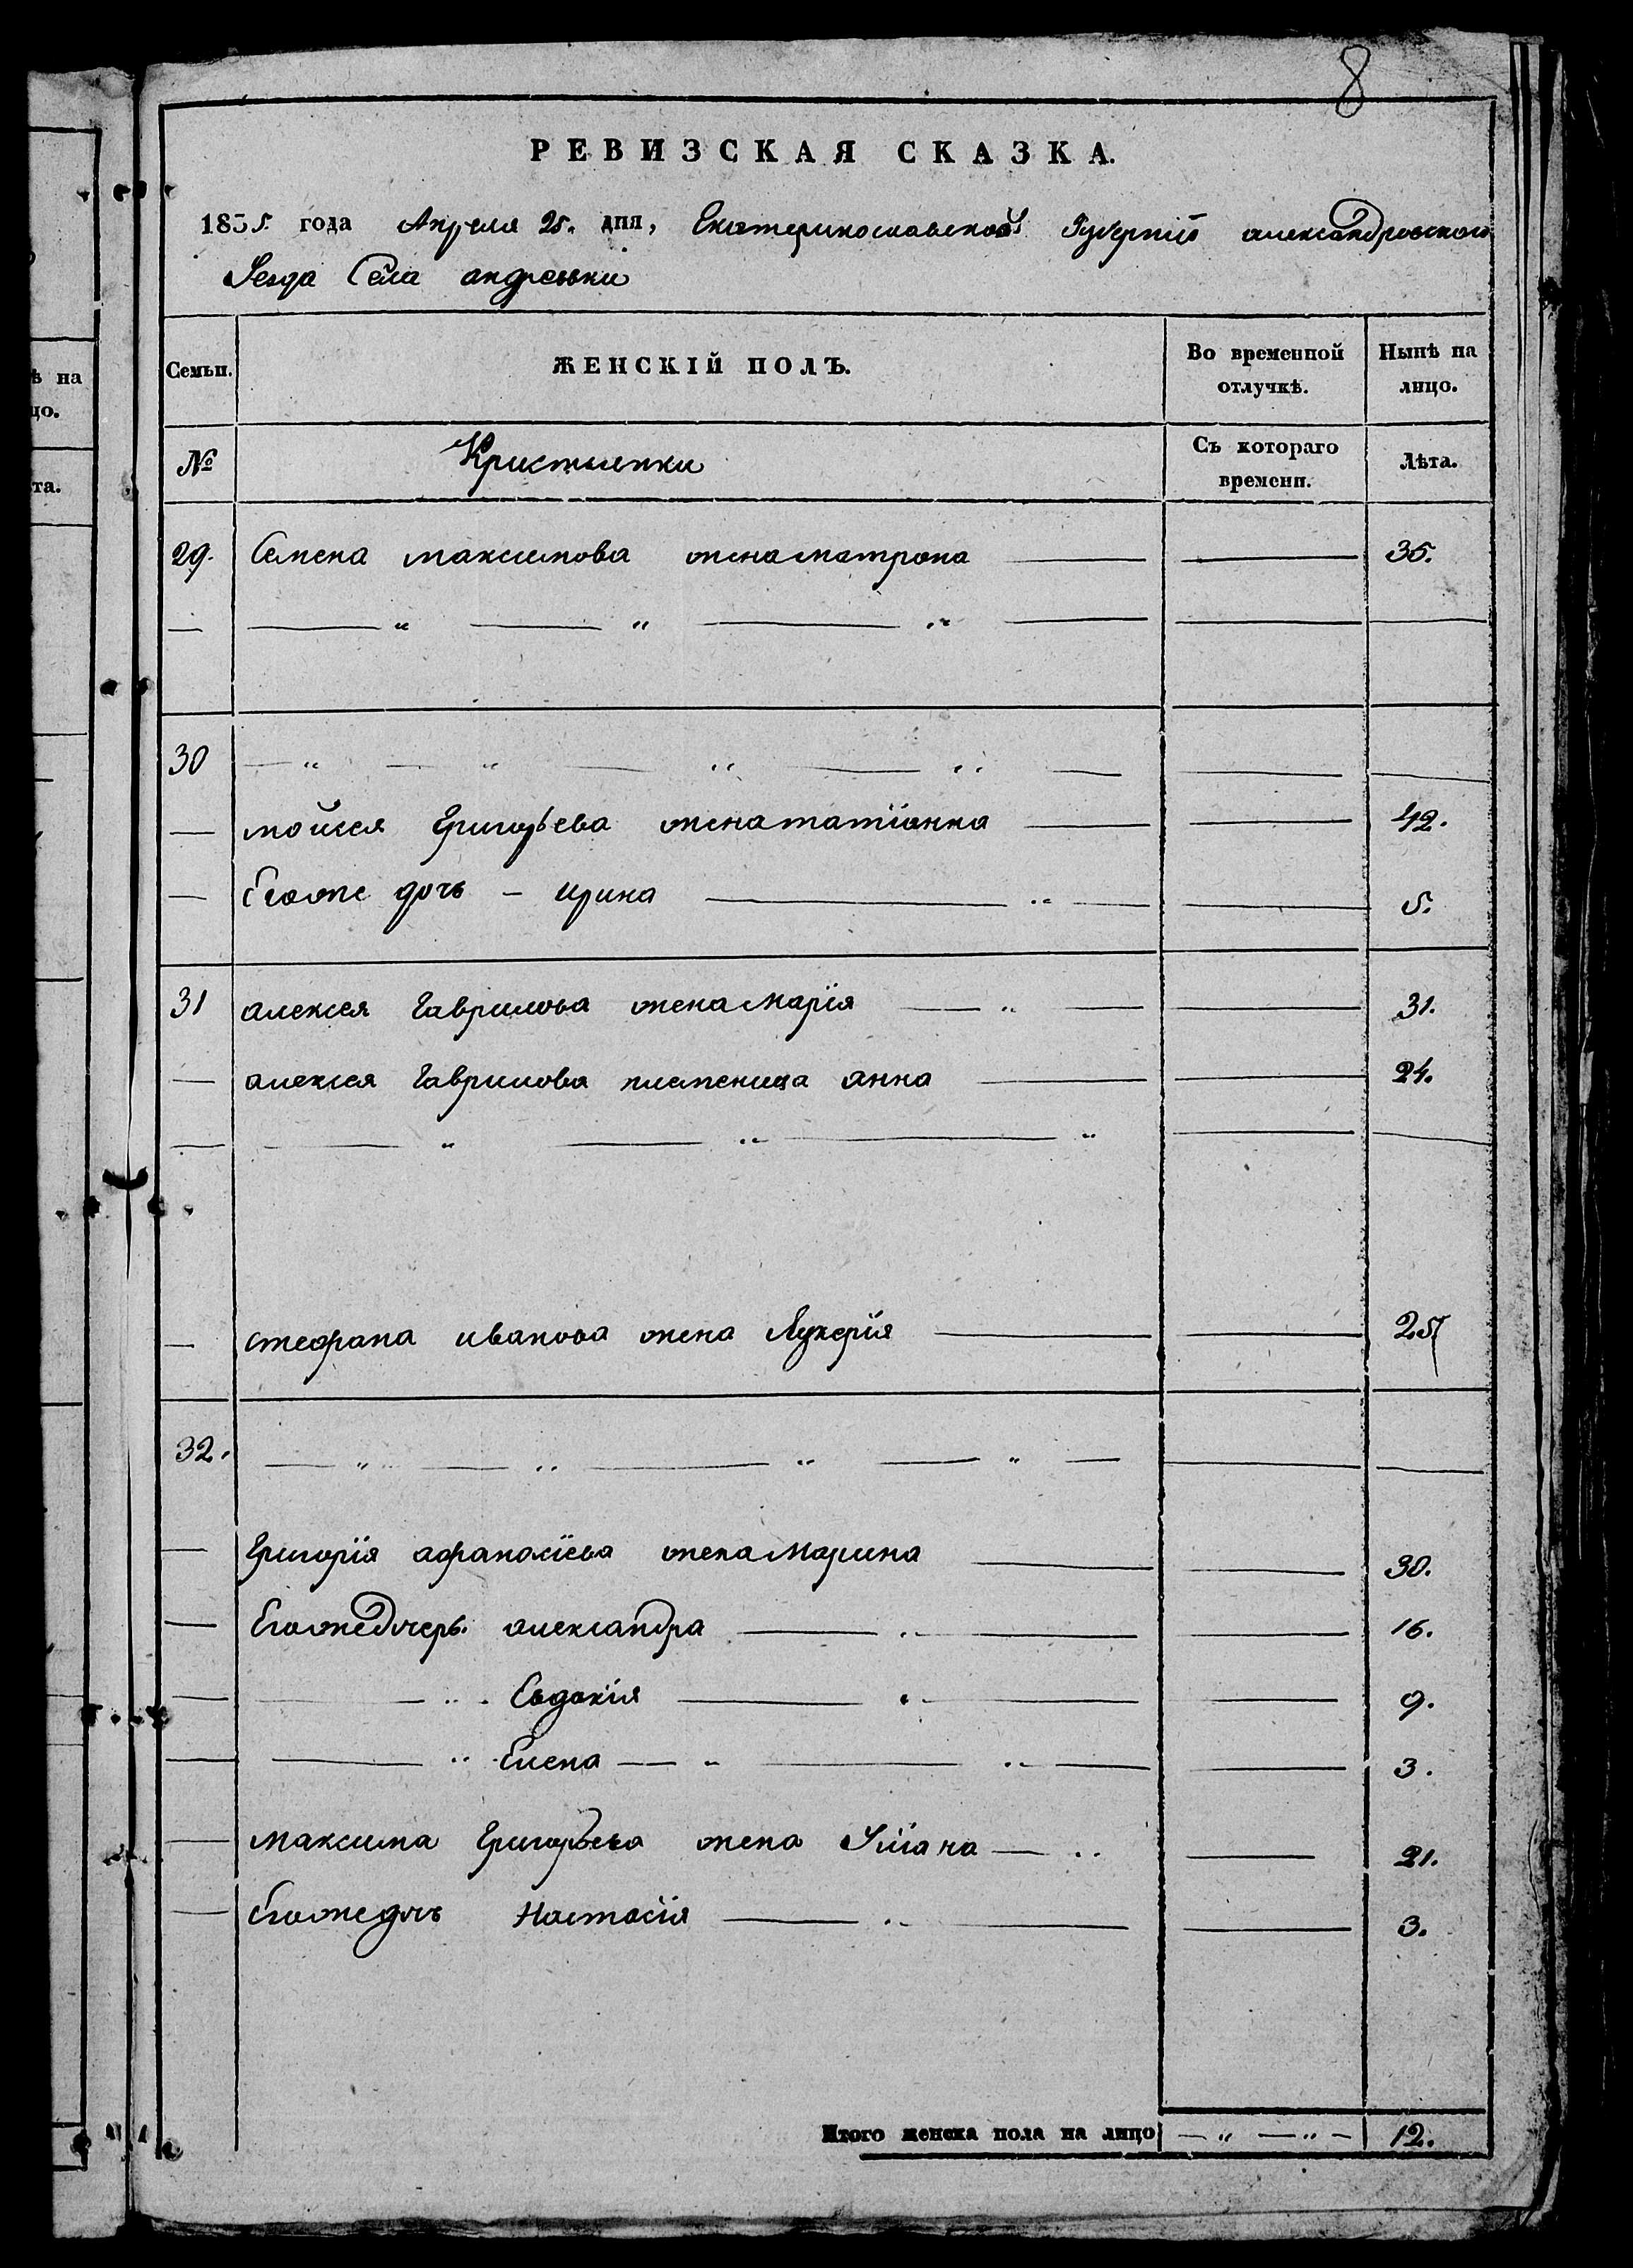 8
РЕВИЗСКАЯ СКАЗКА.
1835. года Апреля 25. дня, Екатеринославской Губернїи александровского
Уезда Села андреевки
Семьи. ЖЕНСКІЙ ПОЛЪ. Во временной отлучкѣ. Нынѣ на лицо.
№ Кристьянки Съ котораго времени. Лѣта.
29. Семена максимова жена матрона — — 35.
— — „ — „ — „ — — —
30 — „ — „ — „ — „ — — —
— мойсея Григорьева жена татїанна — — 42.
— Егоже дочь – ирина — „ — — 5.
31 алексея Гаврилова жена Марїя — „ — — 31.
— алексея Гаврилова племеница анна — — 24.
— — „ — „ — „ — —
— стефана иванова жена Лукерїя — — 25
32. — „ — „ — „ — „ — — —
— Григорїя афанасїева жена Марина — — 30.
— Егоже дочерь. александра — „ — — 16.
— — „ Евдокїя — „ — — 9.
— — „ Елена — „ — „ — — 3.
— максима Григорьева жена Улїана — „ — 21.
— Егоже дочь Настасїя — „ — — 3.
Итого женска пола на лицо — „ — „ — 12.
ѣ на
цо.
та.